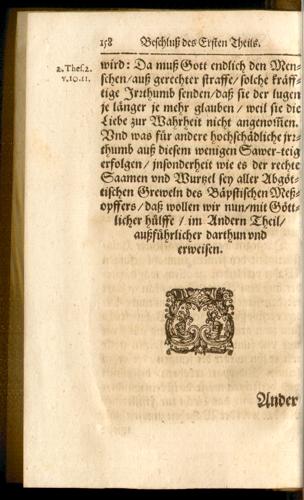 158 Beschluß des Ersten Theils.
2. Thes. 2.
v. 10. 11.
wird: Da muß Gott endlich den Men-
schen/auß gerechter straffe/ solche kräff-
tige Jrꝛthumb senden/daß sie der lugen
je länger je mehr glauben/ weil sie die
Liebe zur Wahrheit nicht angenom̃en.
Vnd was für andere hochschädliche jrꝛ-
thumb auß diesem wenigen Sawer-teig
erfolgen/ jnsonderheit wie es der rechte
Saamen vnd Wurtzel sey aller Abgöt-
tischen Greweln des Bäpstischen Meß-
opffers/ daß wollen wir nun/mit Gött-
licher hülffe/ im Andern Theil/
außführlicher darthun vnd
erweisen.
Ander